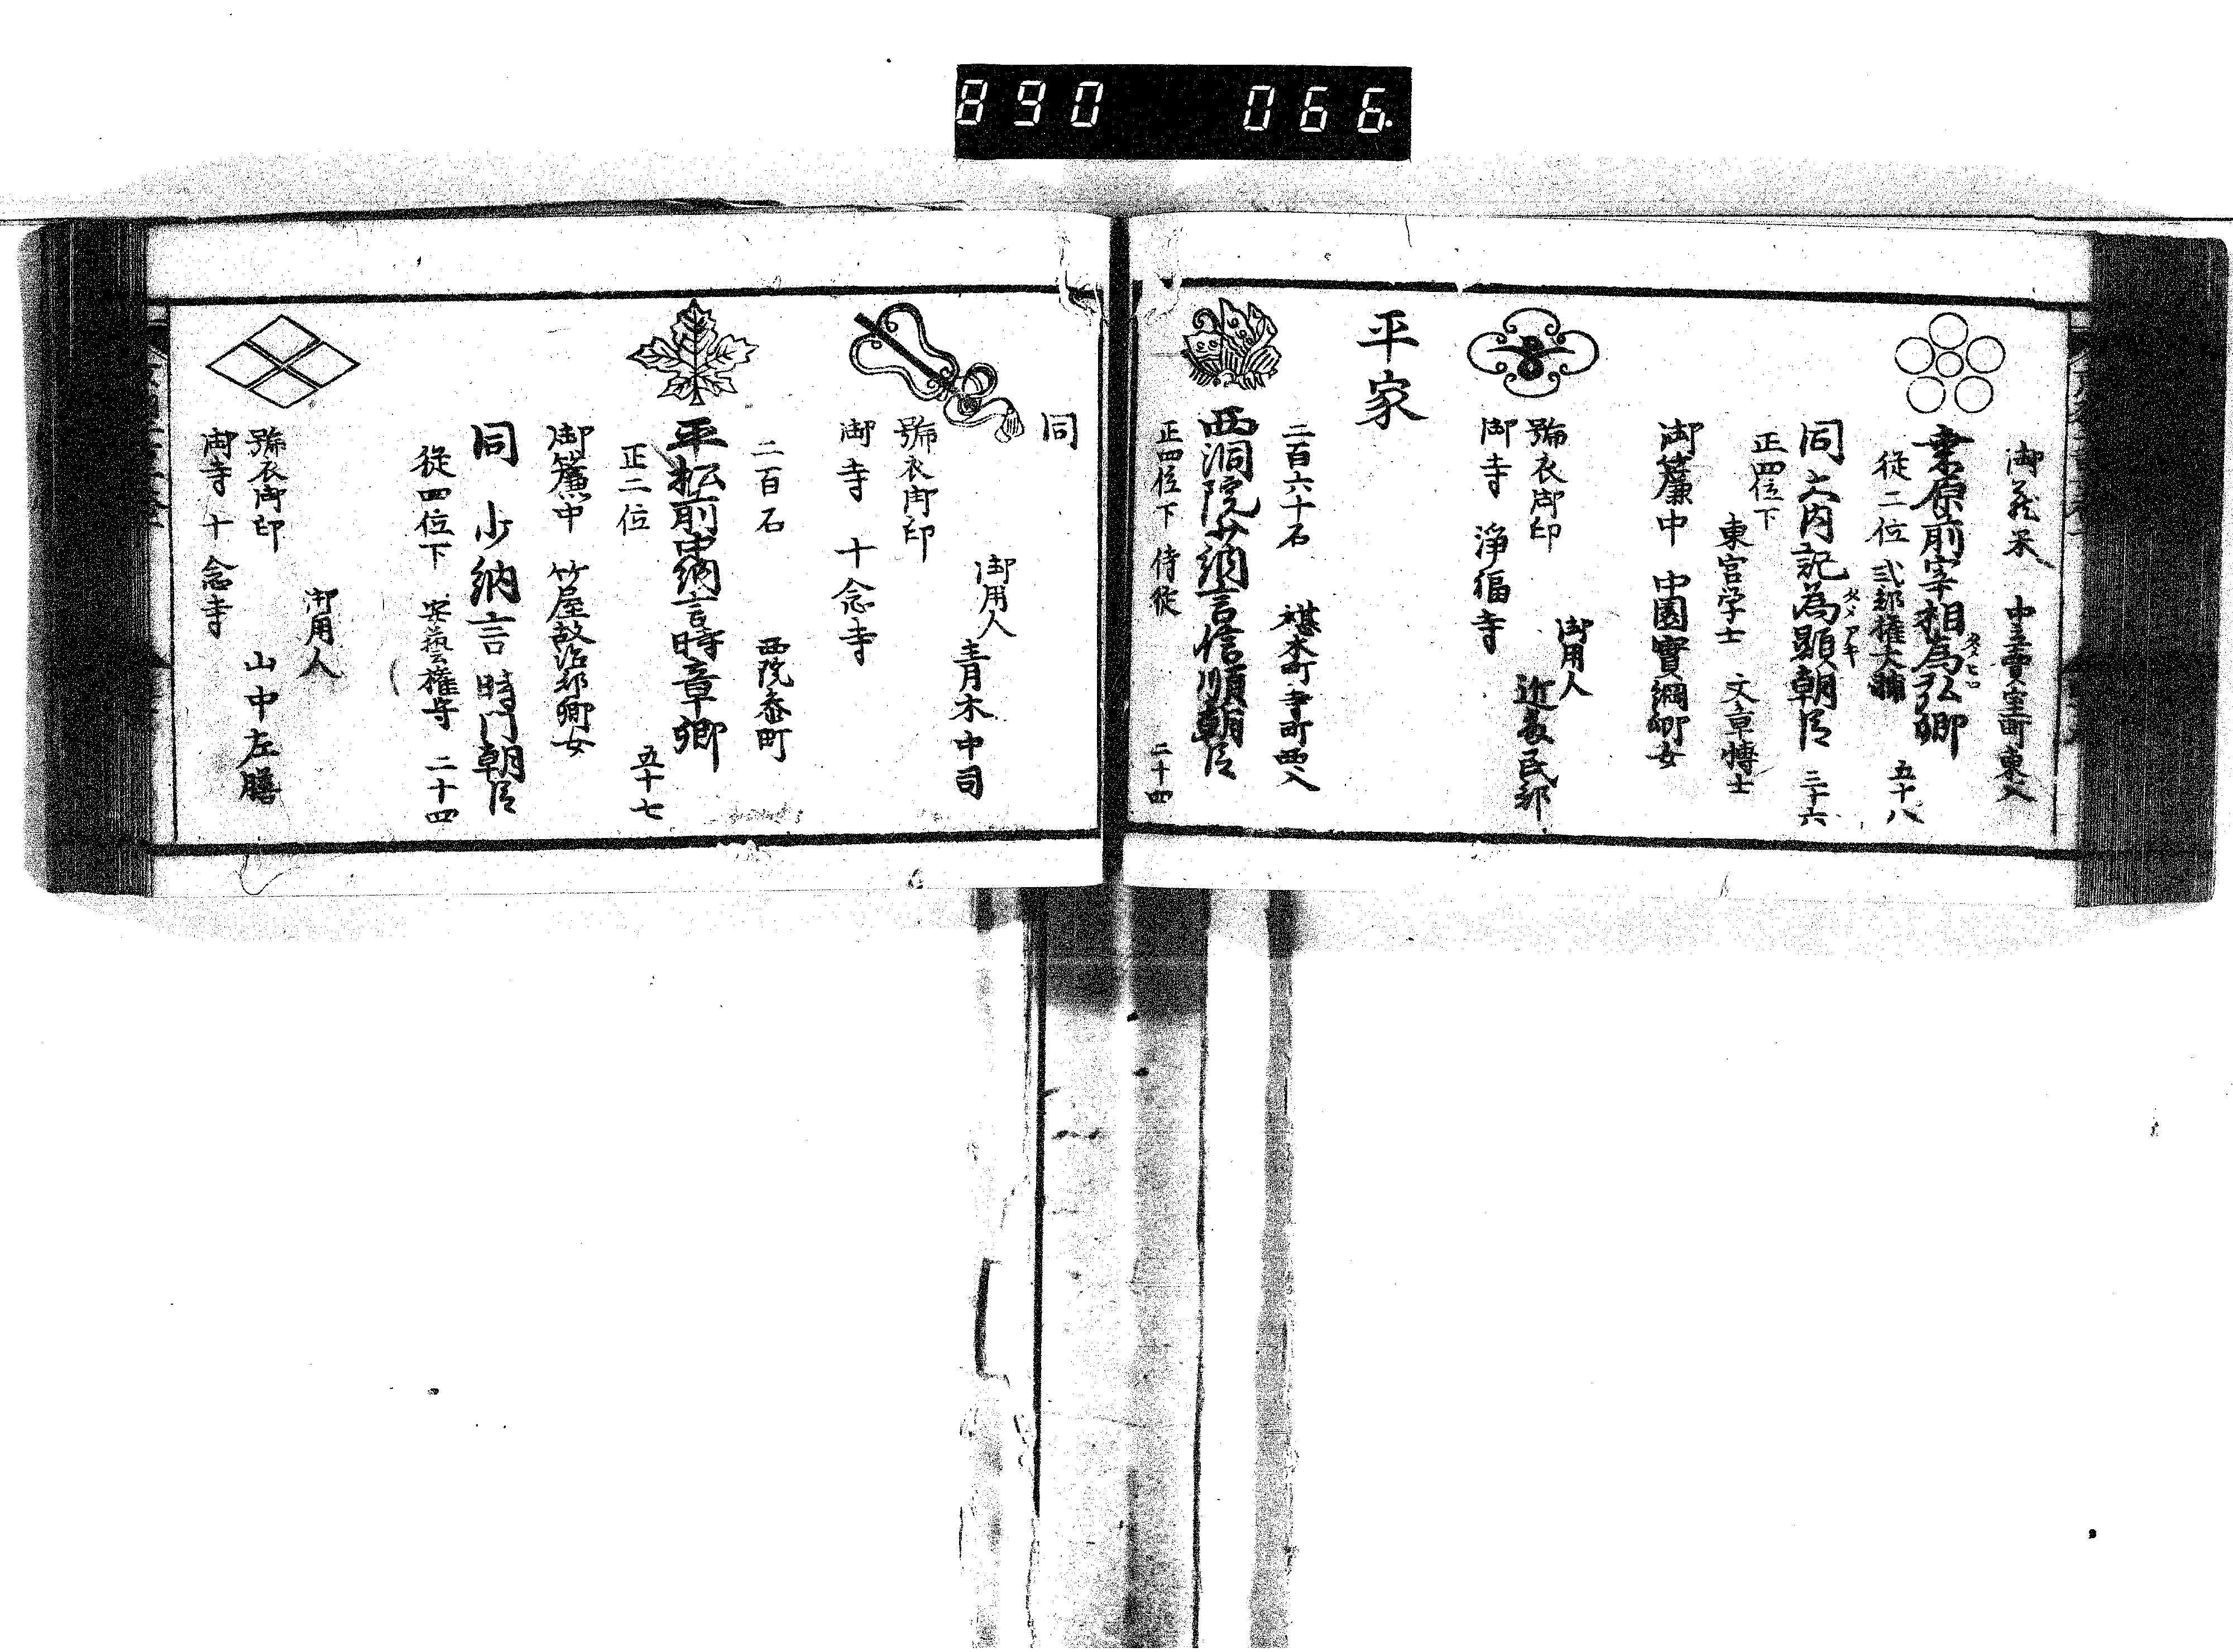 890 066
御蔵米 中立賣室町東入
桒原前宰相為弘卿
タメヒロ
従二位 式部権大輔 五十八
同 大内記為顕朝臣 三十六
タメアキ
正四位下
東宮学士 文章博士
御簾中 中園實綱卿女
御用人
近藤民部
號衣御印
御寺 浄福寺
平家
二百六十石 椹木町 寺町西入
西洞院少納言信順朝臣
正四位下 侍従 二十四
同
御用人
青木中司
號衣御印
御寺 十念寺
二百石 西院参町
平松前中納言時章卿
正二位 五十七
御簾中 竹屋故治部卿女
同 少納言 時門朝臣
従四位下 安藝権守 二十四
御用人
山中左膳
號衣御印
御寺 十念寺